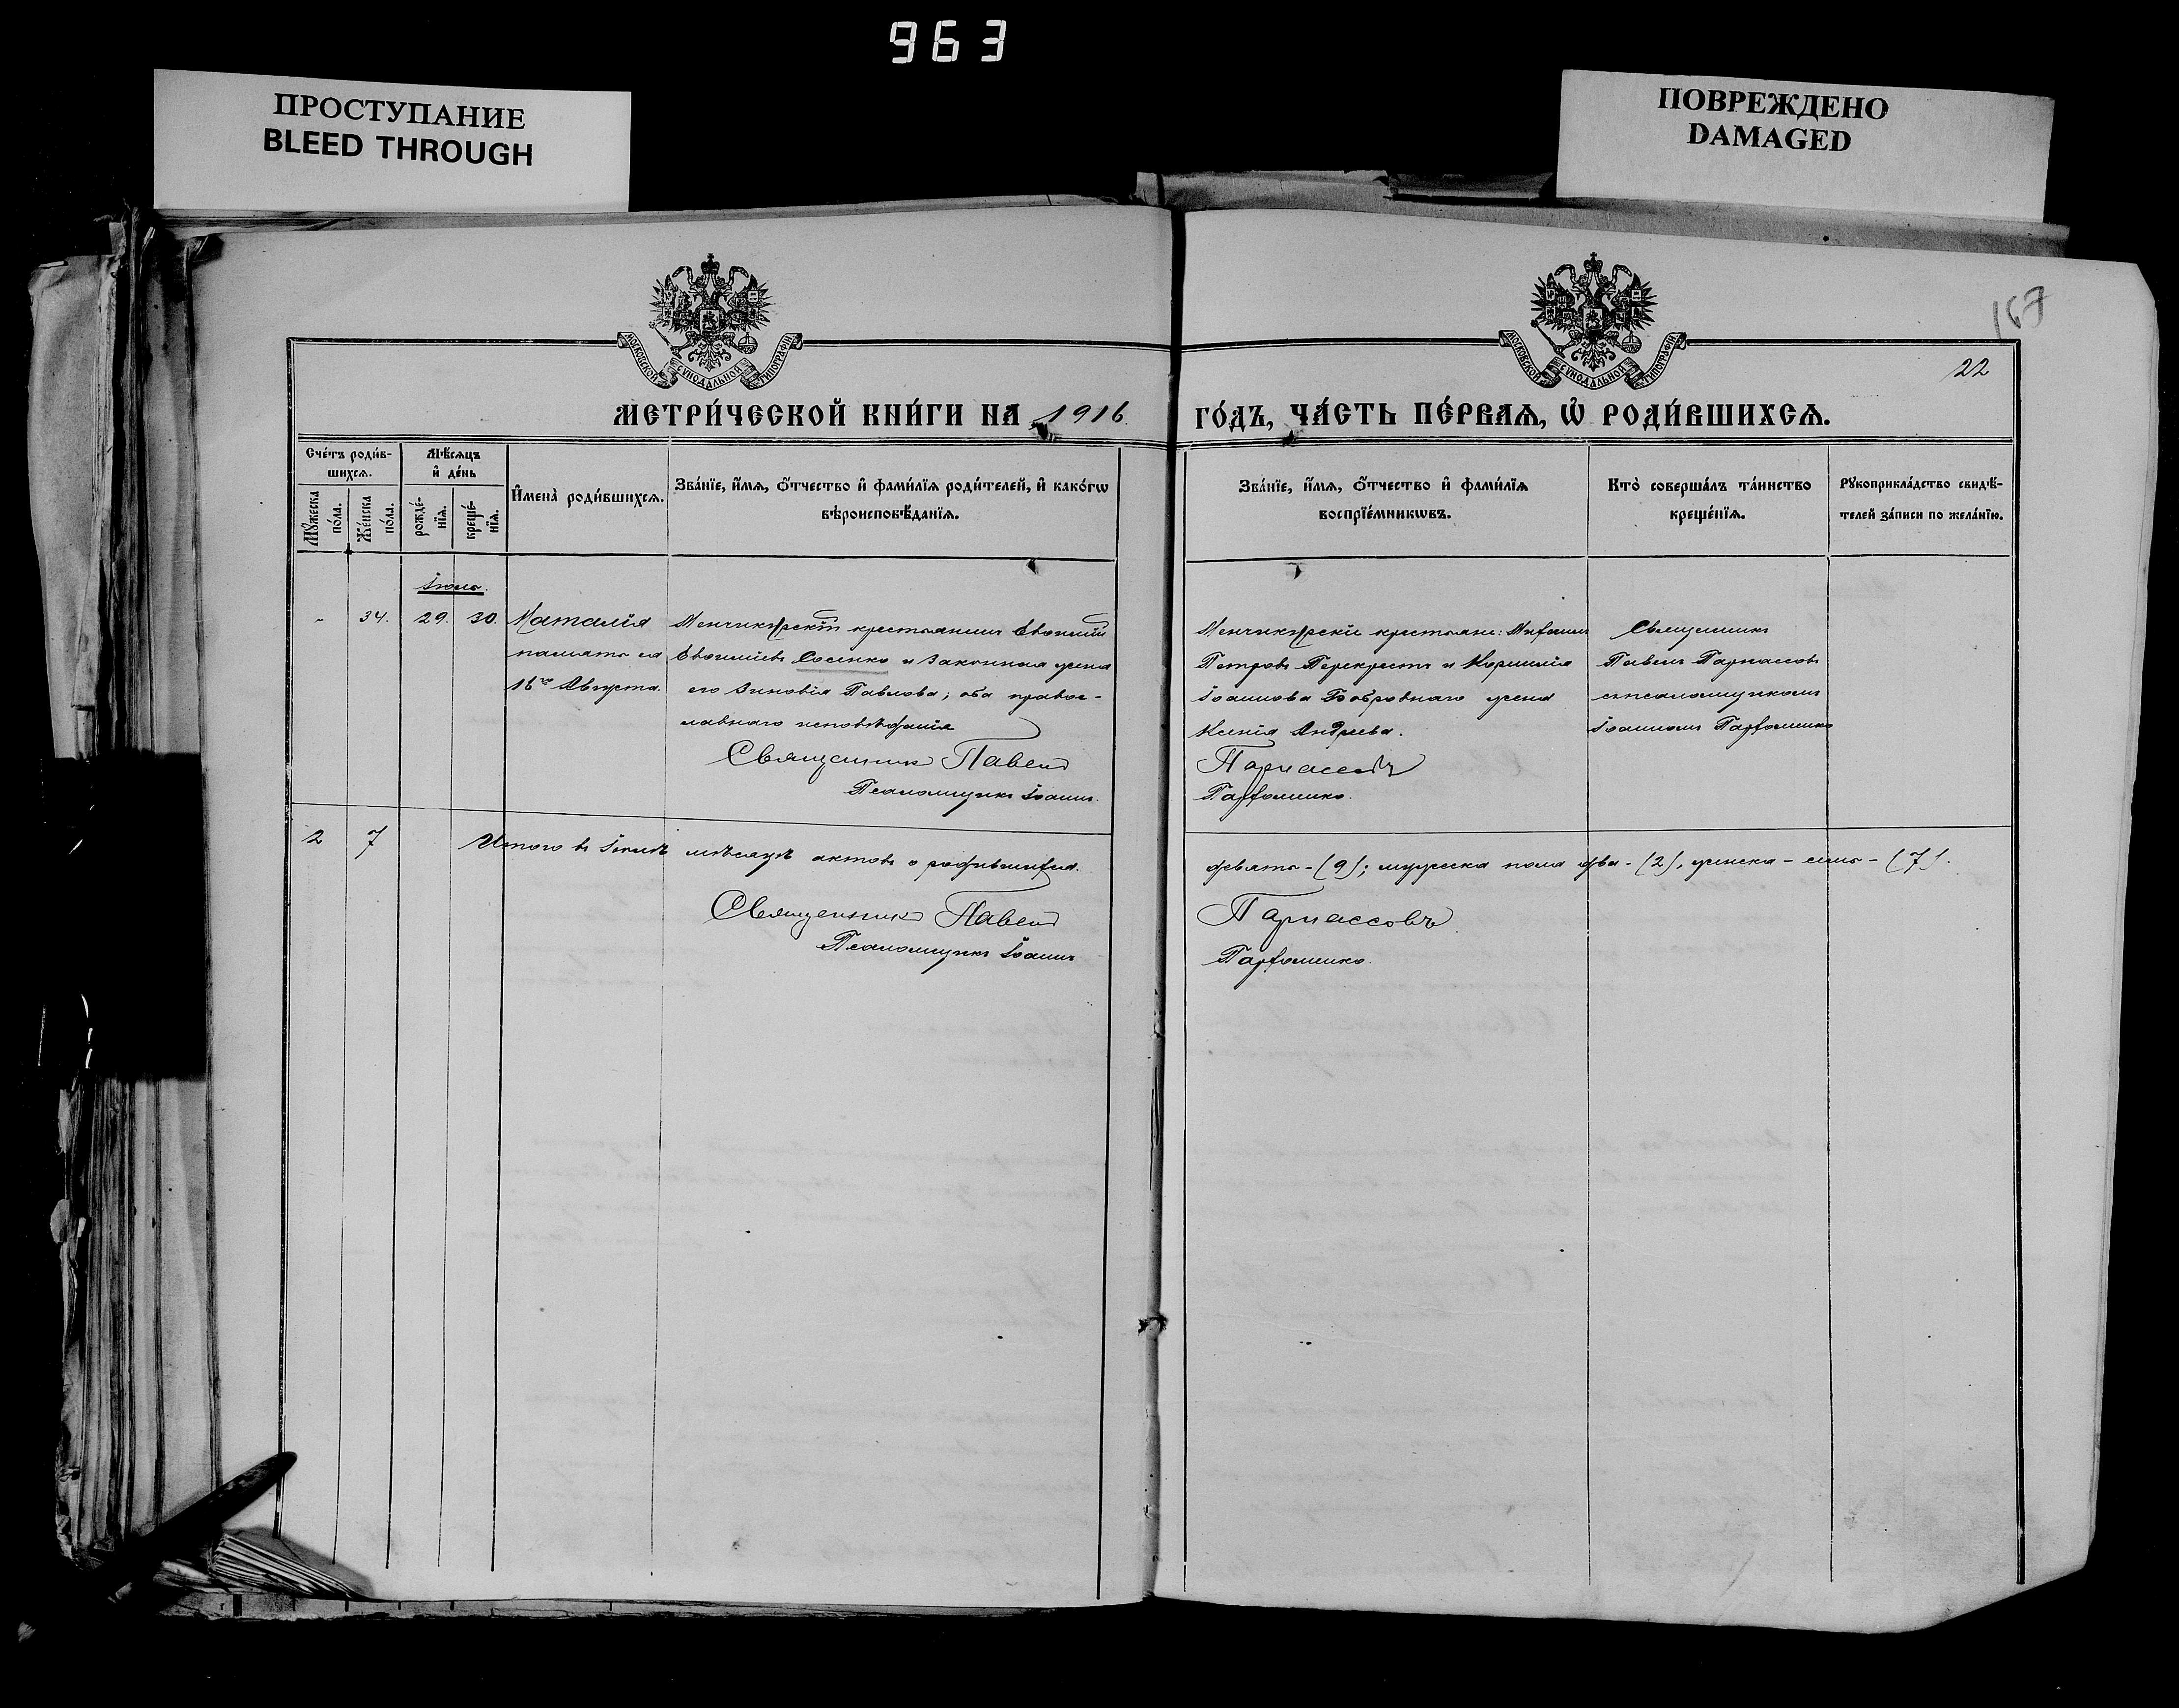 963
ПРОСТУПАНИЕ
BLEED THROUGH
ПОВРЕЖДЕНО
DAMAGED
167
22
МОСКОВСКОЙ СѴНОДАЛЬНОЙ ТИПОГРАФІИ
МОСКОВСКОЙ СѴНОДАЛЬНОЙ ТИПОГРАФІИ
МЕТРИ́ЧЕСКОЙ КНИ́ГИ НА 1916
ГО́ДЪ, ЧА́СТЬ ПЕ́РВАѦ, Ѡ҆ РОДИ́ВШИХСѦ.
Сче́тъ роди́в-
шихсѧ.
Мꙋ́жеска по́ла.
Же́нска по́ла.
Мѣ́сяцъ
и҆ де́нь
рожде́-
нїѧ.
креще́-
нїѧ.
И҆мена̀ роди́вшихсѧ.
Зва́нїе, и҆́мѧ, ѻ҆́тчество и҆ фами́лїѧ роди́телей, и҆ како́гѡ
вѣроисповѣ́данїѧ.
Зва́нїе, и҆́мѧ, ѻ҆́тчество и҆ фами́лїѧ
воспрїе́мникѡвъ.
Кто̀ соверша́лъ та́инство
креще́нїѧ.
Рꙋкоприкла́дство свидѣ́-
телей за́писи по жела́нїю.
Іюль.
34. 29. 30.
Наталія
память ея
16го Августа.
крестьянинъ Евѳимій
Евѳиміевъ Сосенко и законная жена
его Зиновія Павлова; оба правос-
лавнаго исповѣданія
Священникъ Павелъ
Псаломщикъ Іоаннъ
крестьяне:
Петровъ Перекрестъ и Корнилія
Іоаннова Бобровнаго жена
Ксенія Андреева.
Парнассовъ
Парфоменко.
Священникъ
Павелъ Парнассовъ
съ псаломщикомъ
Іоанномъ Парфоменко
2 7
Итого въ Іюлѣ мѣсяцѣ актовъ о родившихся.
девять - (9); мужеска пола два - (2), женска - семь - (7).
Священникъ Павелъ
Парнассовъ
Псаломщикъ Іоаннъ
Парфоменко.